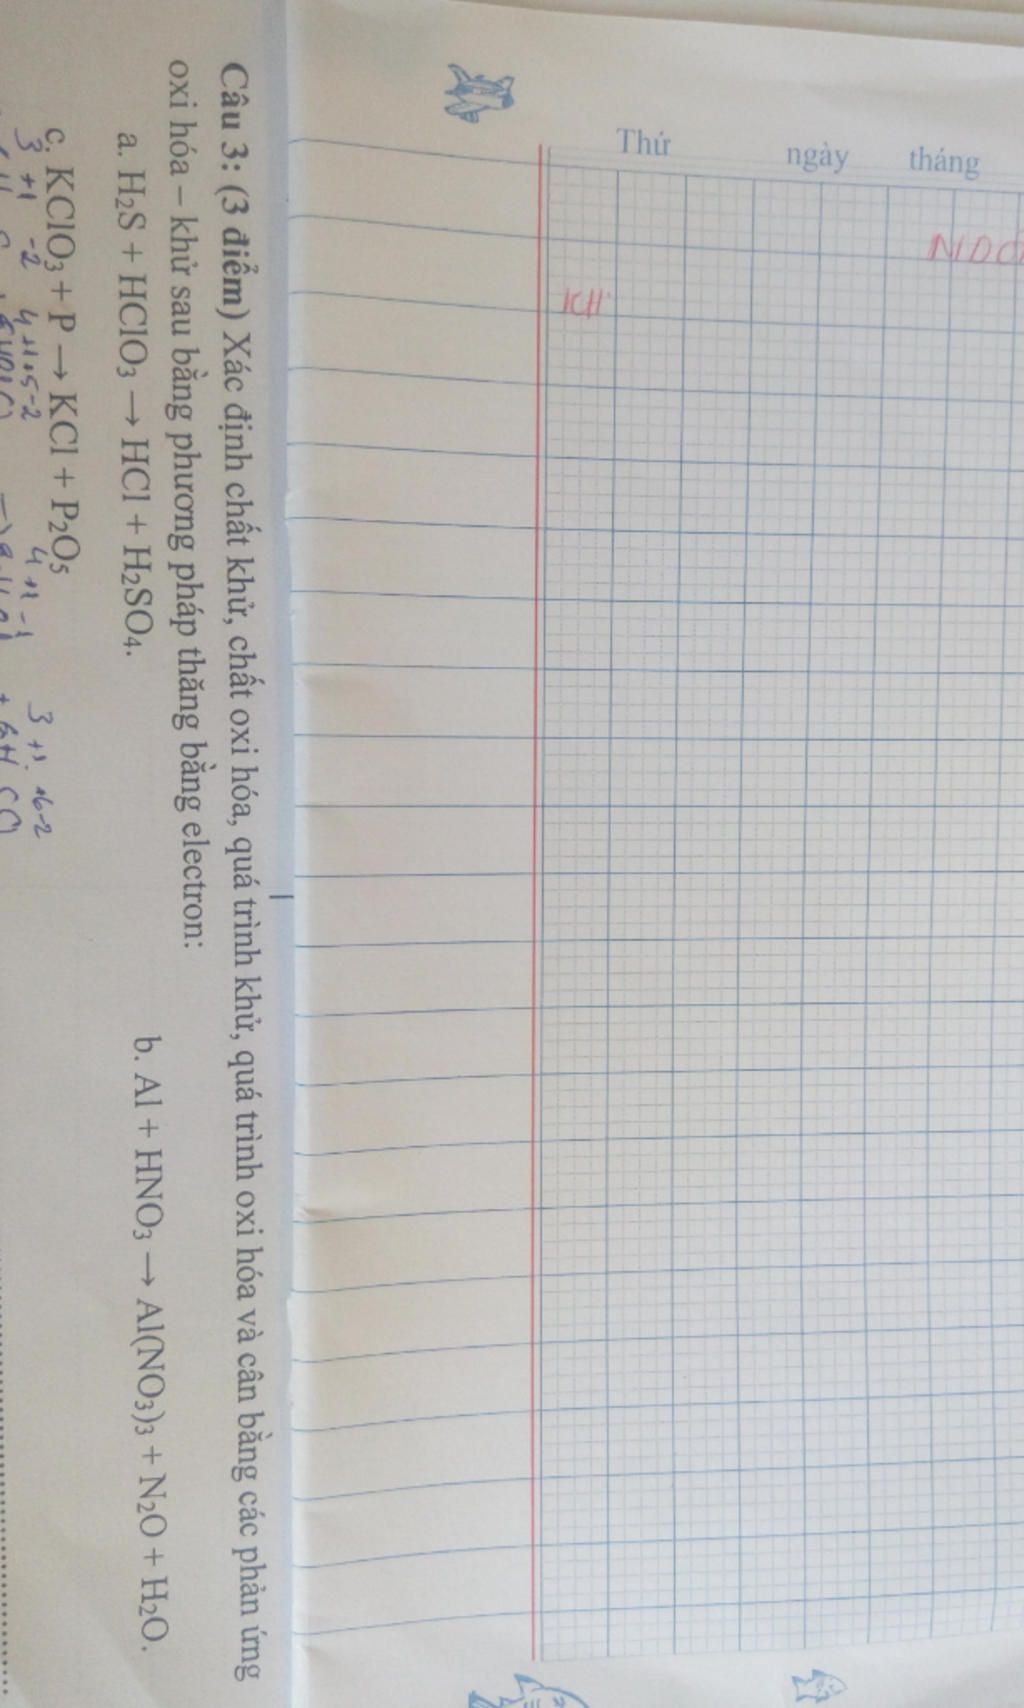 Thứ ngày tháng
KH
Câu 3: (3 điểm) Xác định chất khử, chất oxi hóa, quá trình khử, quá trình oxi hóa và cân bằng các phản ứng
oxi hóa – khử sau bằng phương pháp thăng bằng electron:
a. H₂S + HClO₃ → HCl + H₂SO₄. b. Al + HNO₃ → Al(NO₃)₃ + N₂O + H₂O.
c. KClO₃ + P → KCl + P₂O₅
3 +1 -2 4 +1+5-2 4 +1 -1 3 +1 +6-2